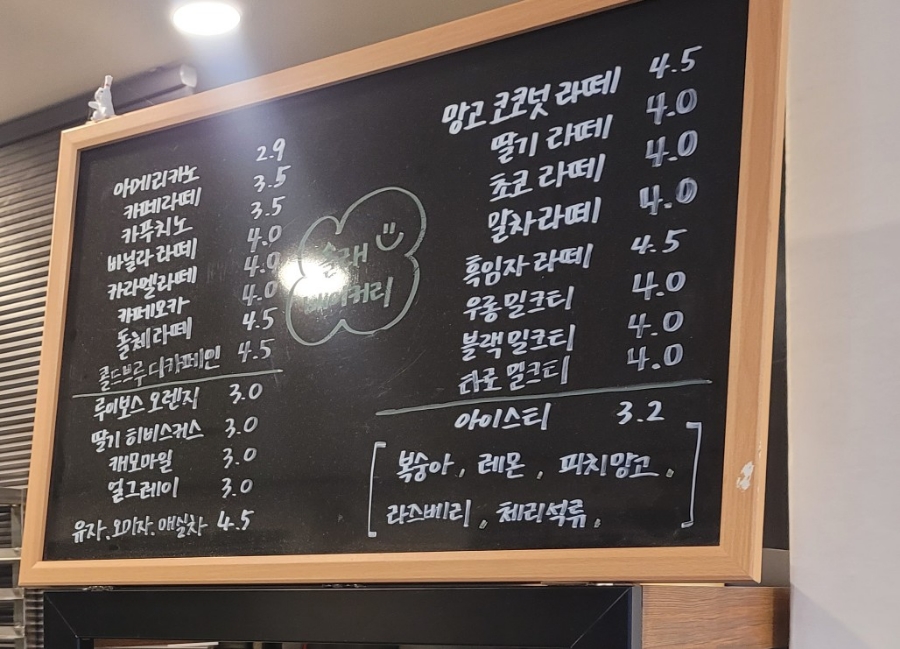 아메리카노 2.9
카페라떼 3.5
카푸치노 3.5
바닐라 라떼 4.0
카라멜라떼 4.0
카페모카 4.0
돌체라떼 4.5
콜드브루 디카페인 4.5
루이보스 오렌지 3.0
딸기 히비스커스 3.0
캐모마일 3.0
얼그레이 3.0
유자.오미자.매실차 4.5
베이커리
망고 코코넛 라떼 4.5
딸기 라떼 4.0
초코 라떼 4.0
말차라떼 4.0
흑임자 라떼 4.5
우롱 밀크티 4.0
블랙 밀크티 4.0
타로 밀크티 4.0
아이스티 3.2
복숭아, 레몬, 피치망고,
라즈베리, 체리석류,